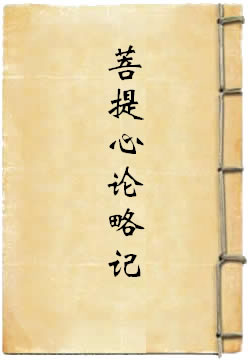 菩提心论略记